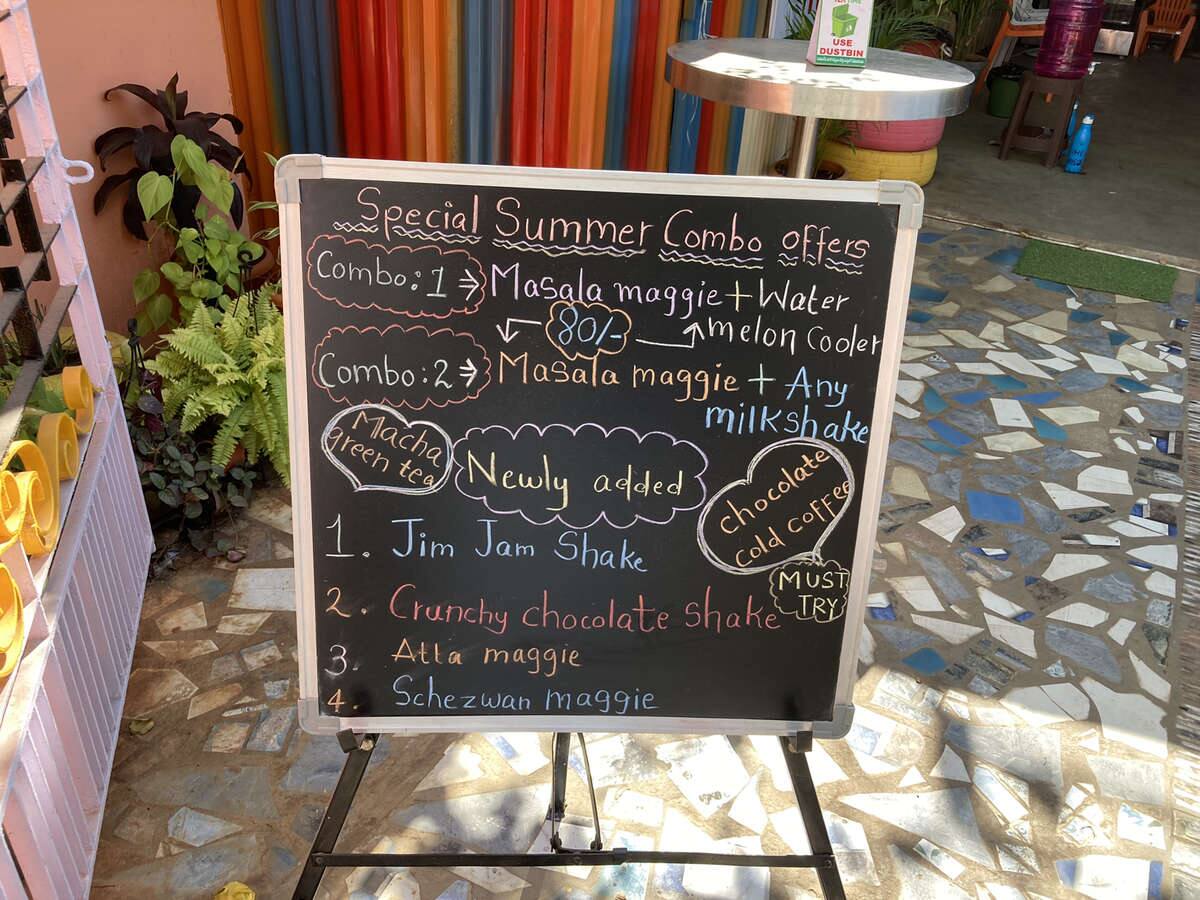 USE
DUSTBIN
Special Summer Combo offers
Combo:1 → Masala maggie + Water
80/- melon Cooler
Combo:2 → Masala maggie + Any
milkshake
Macha
green tea
Newly added
chocolate
cold coffee
MUST
TRY
1. Jim Jam Shake
2. Crunchy chocolate shake
3. Atta maggie
4. Schezwan maggie